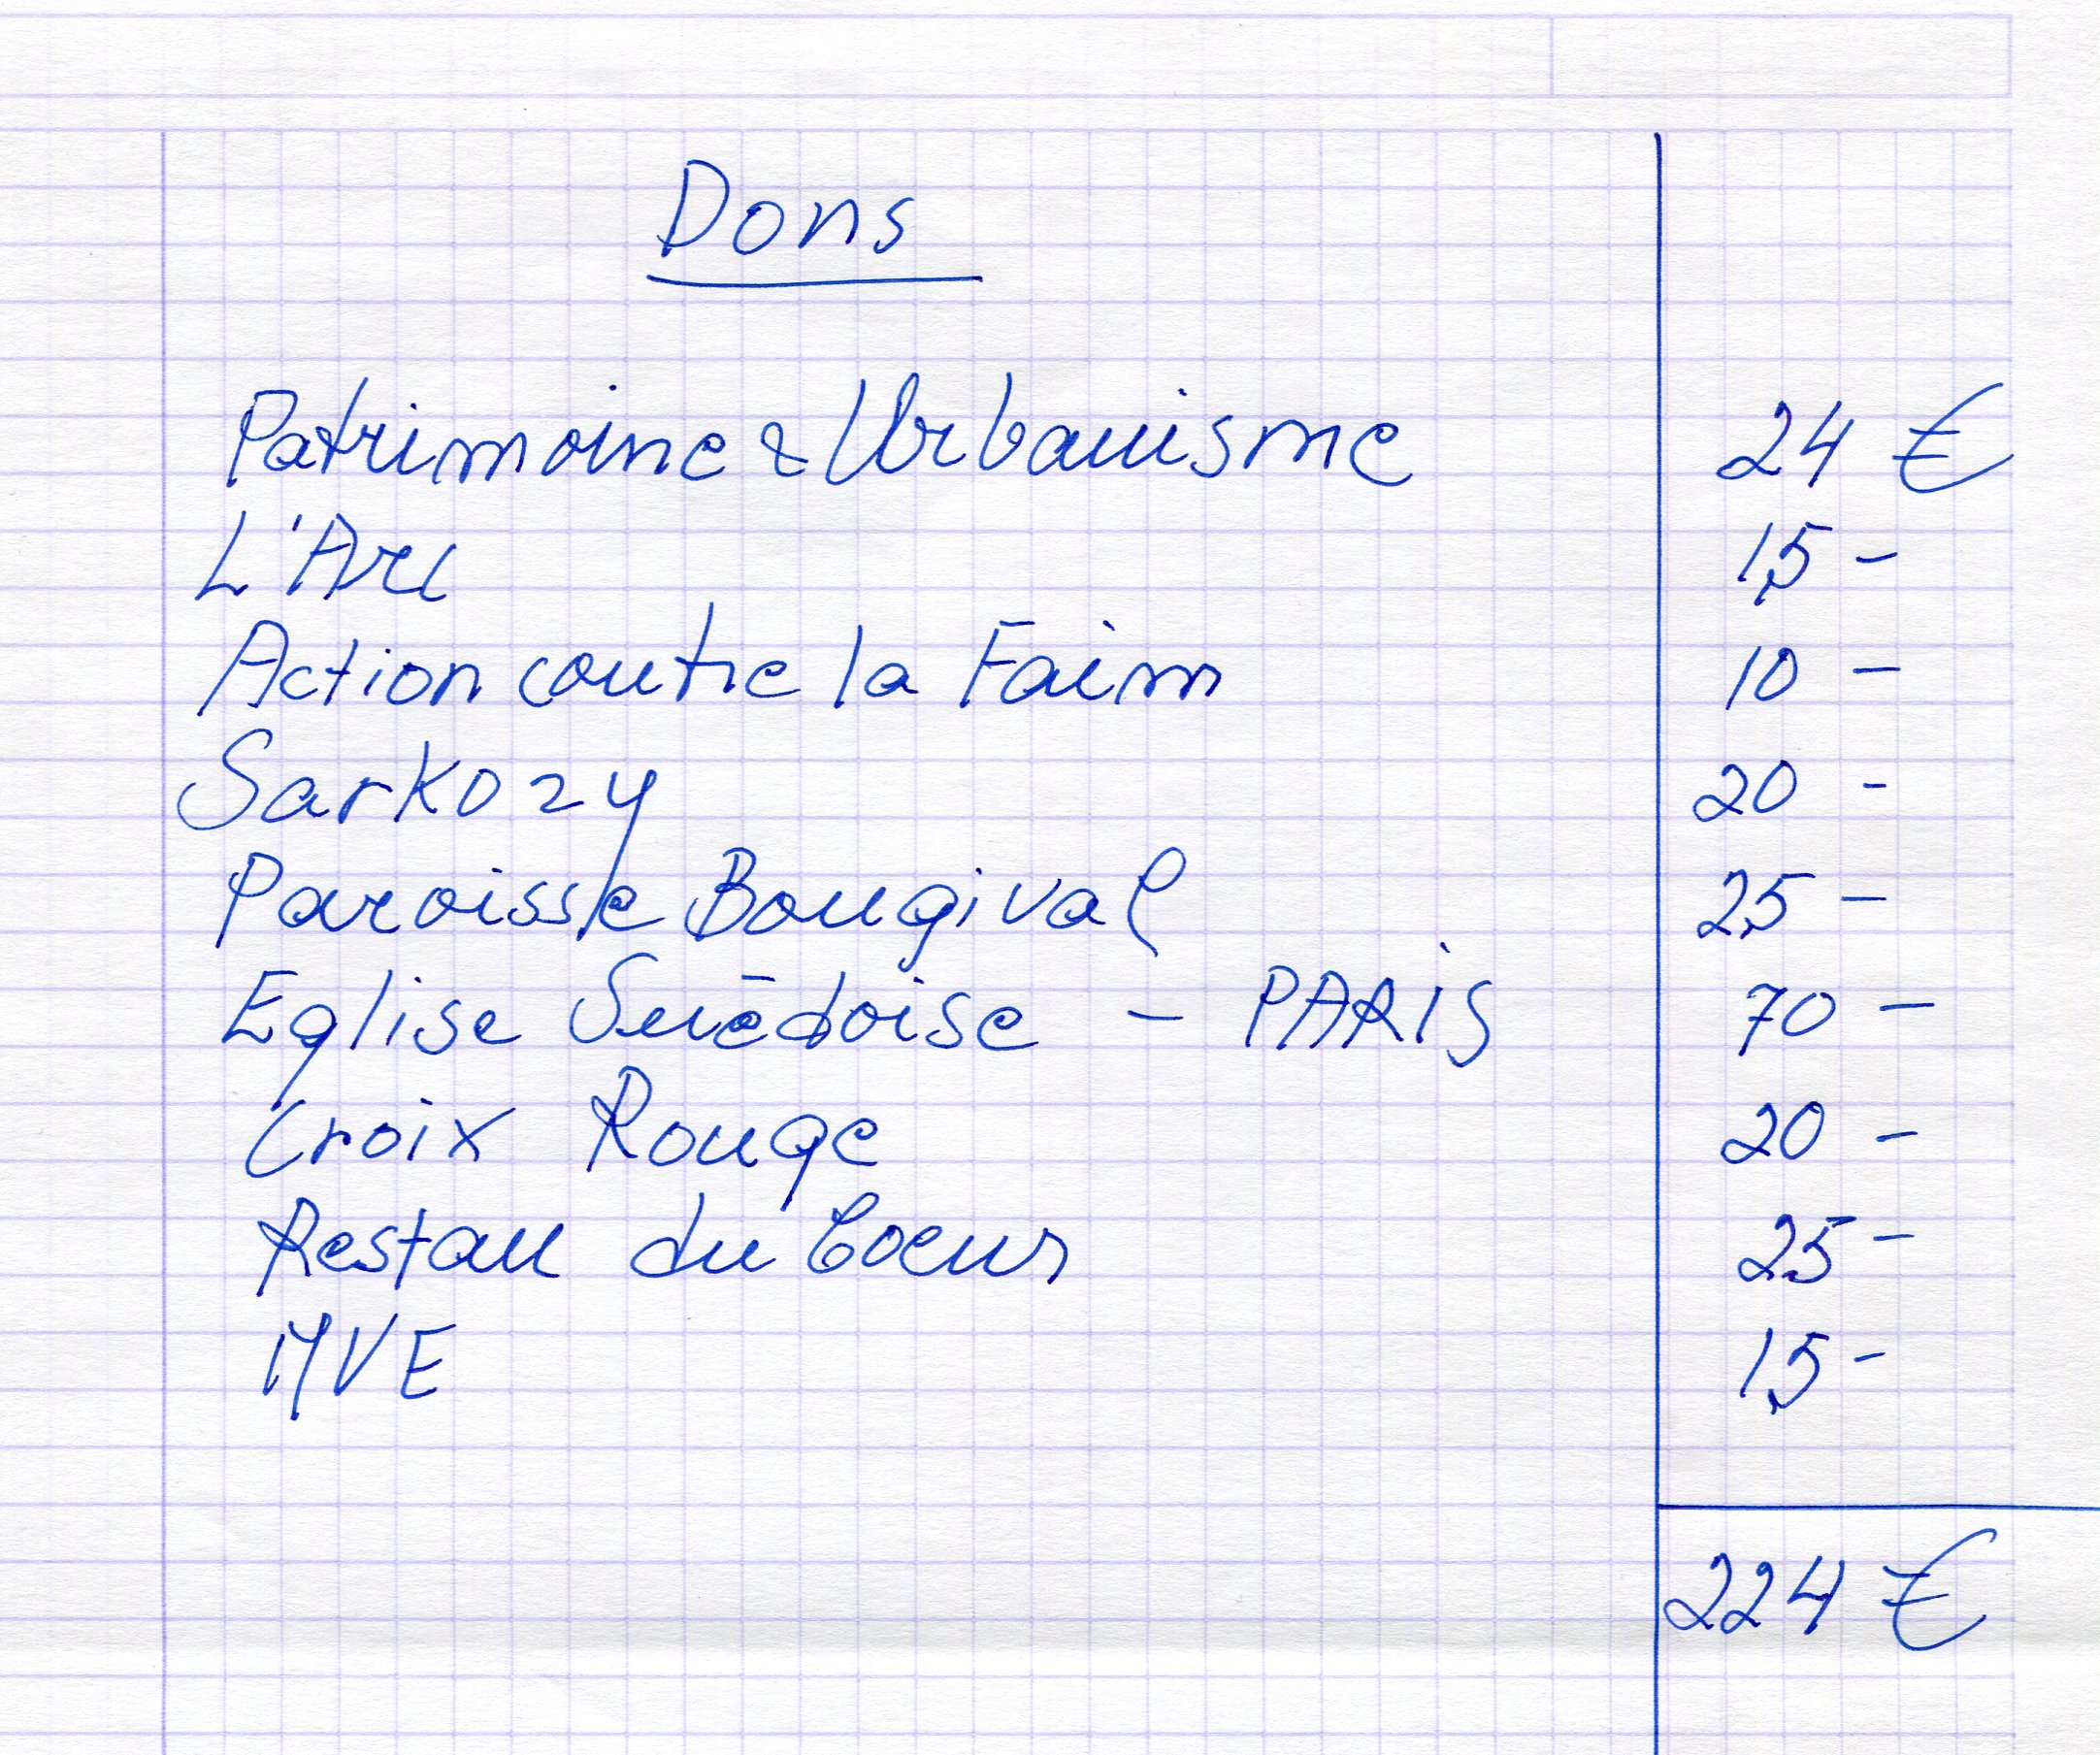 Dons
Patrimoine & Urbanisme 24 €
L'Arc 15 -
Action contre la Faim 10 -
Sarkozy 20 -
Paroisse Bougival 25 -
Eglise Suédoise - PARIS 70 -
Croix Rouge 20 -
Restau du Coeur 25 -
MVE 15 -
224 €